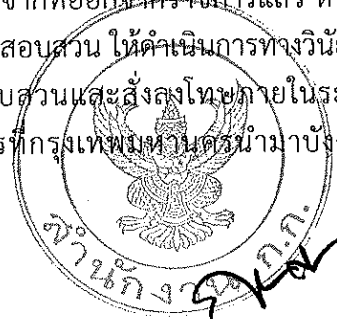 จากที่ออกจากราชการแล้ว
สอบสวน ให้ดำเนินการทางวินัย
สวนและสั่งลงโทษภายในระ
ที่กรุงเทพมหานครนำมาบัง
สำนักงาน ก.ก.